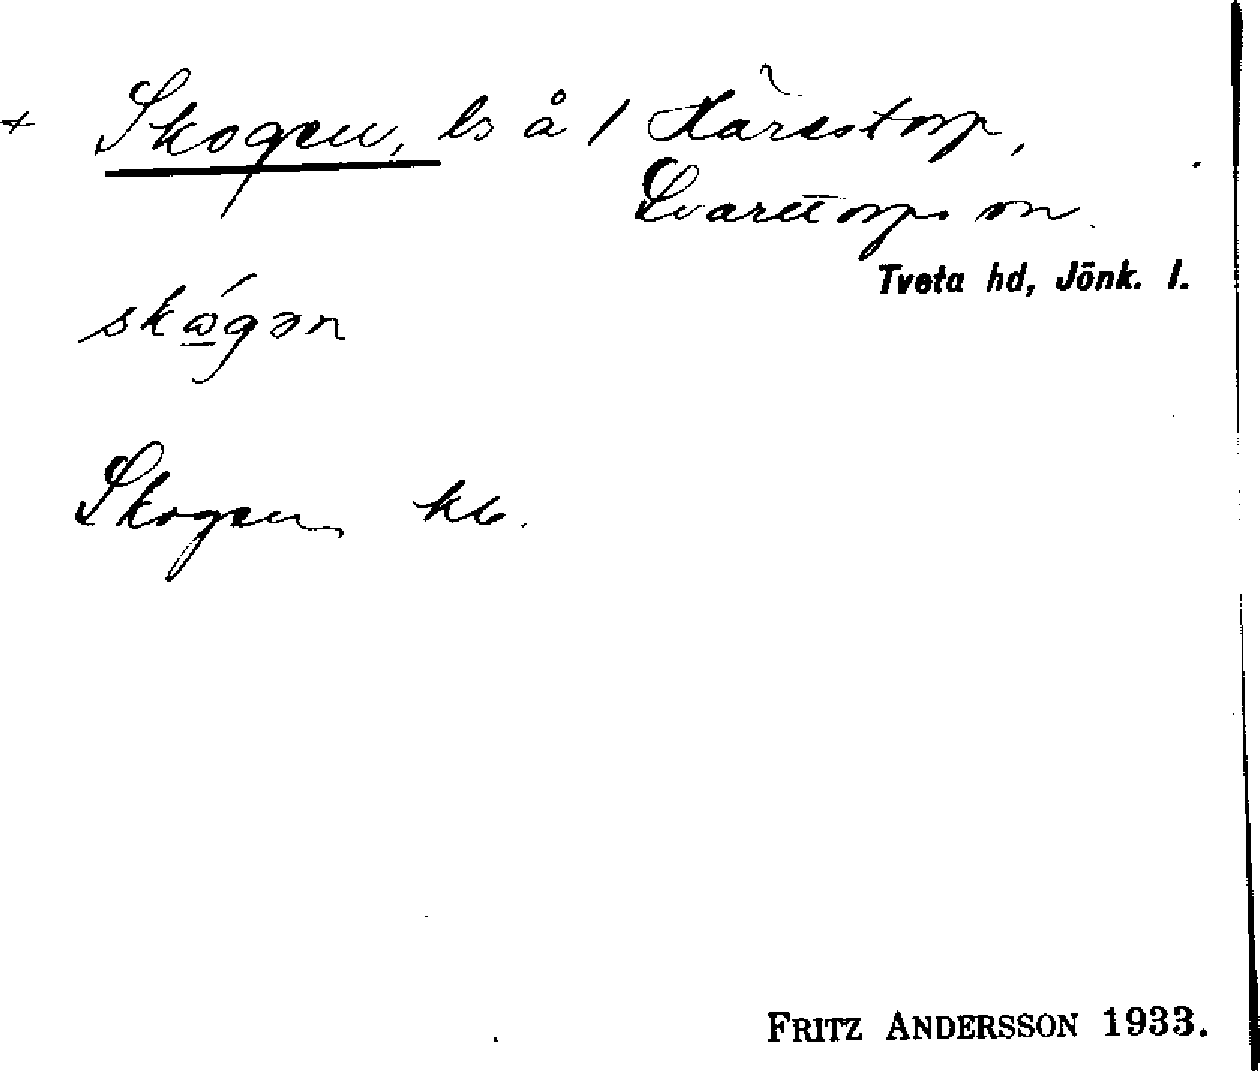 + Skogen, ls å / Häresstorp,
Svarttorps sn.
Tveta hd, Jönk. l.
skógən
Skogen kb.
FRITZ ANDERSSON 1933.